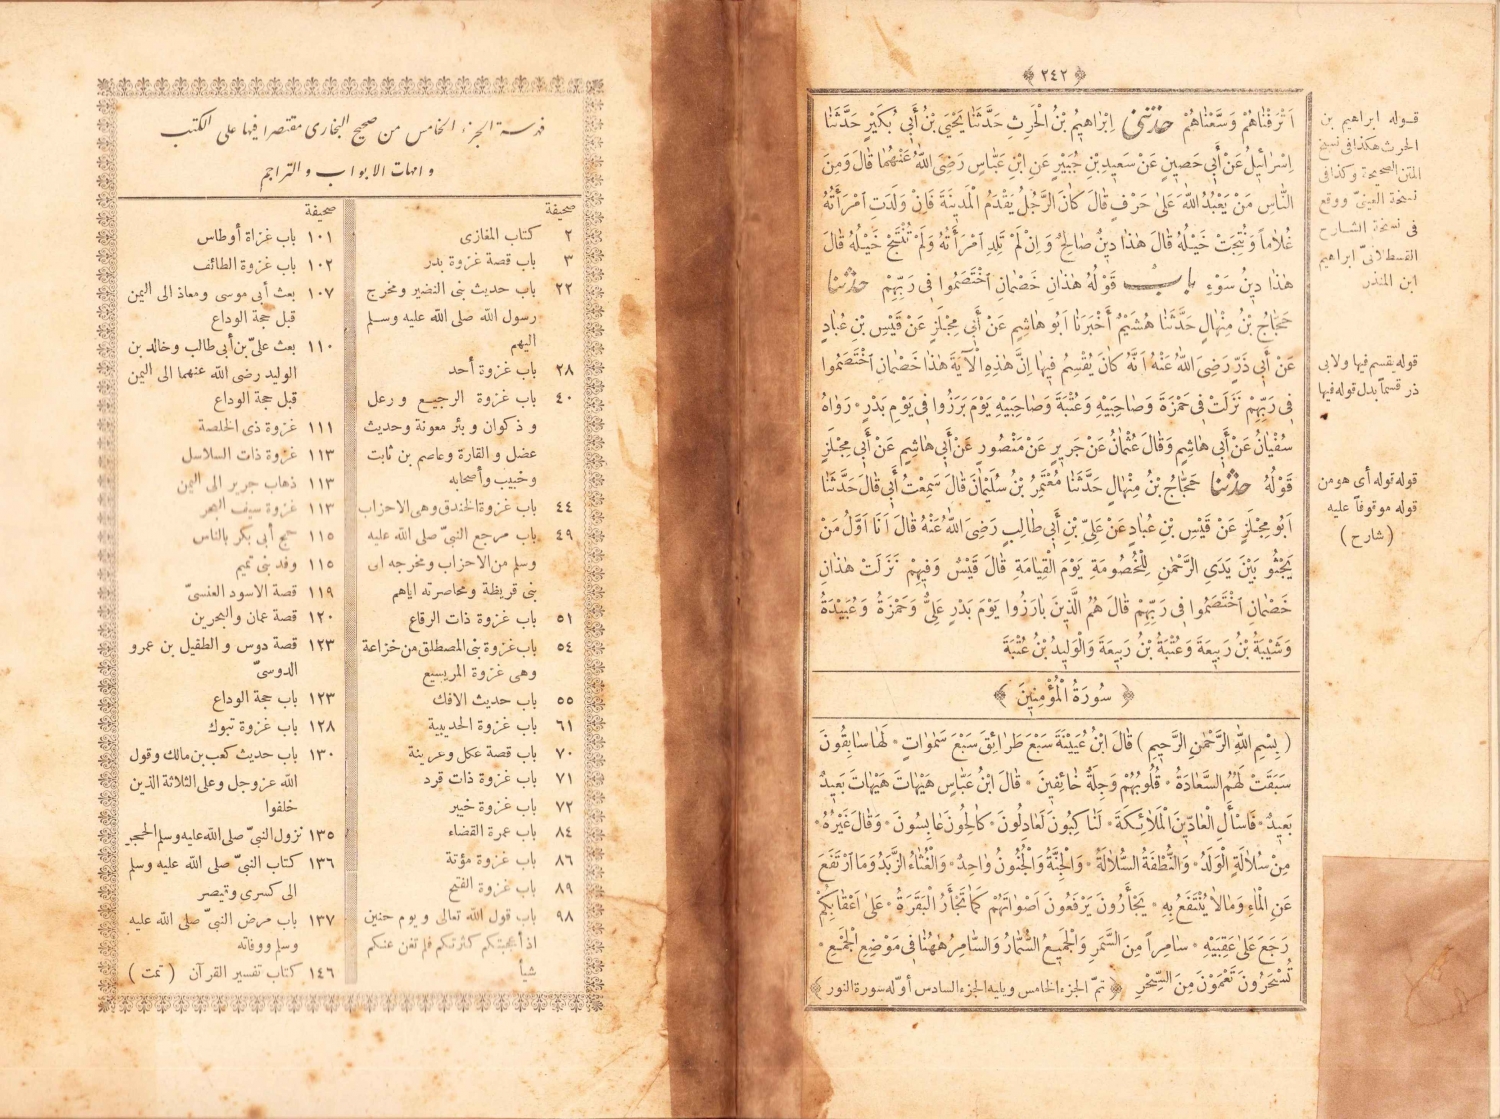 ﴿ ٢٤٢ ﴾
اَتْرَفْنَاهُمْ وَسَّعْنَاهُمْ حَدَّثَنِي اِبْرَاهِيمُ بْنُ الْحَرِثِ حَدَّثَنَا يَحْيَى بْنُ أَبِي بُكَيْرٍ حَدَّثَنَا
اِسْرَائِيلُ عَنْ أَبِي حَصِينٍ عَنْ سَعِيدِ بْنِ جُبَيْرٍ عَنِ ابْنِ عَبَّاسٍ رَضِىَ اللّٰهُ عَنْهُمَا قَالَ وَمِنَ
النَّاسِ مَنْ يَعْبُدُ اللّٰهَ عَلَى حَرْفٍ قَالَ كَانَ الرَّجُلُ يَقْدَمُ الْمَدِينَةَ فَاِنْ وَلَدَتِ امْرَأَتُهُ
غُلَاماً وَنُتِجَتْ خَيْلُهُ قَالَ هٰذَا دِينٌ صَالِحٌ وَاِنْ لَمْ تَلِدِ امْرَأَتُهُ وَلَمْ تُنْتَجْ خَيْلُهُ قَالَ
هٰذَا دِينُ سَوْءٍ بَابُ قَوْلُهُ هٰذَانِ خَصْمَانِ اخْتَصَمُوا فِى رَبِّهِمْ حَدَّثَنَا
حَجَّاجُ بْنُ مِنْهَالٍ حَدَّثَنَا هُشَيْمٌ أَخْبَرَنَا اَبُو هَاشِمٍ عَنْ أَبِي مِجْلَزٍ عَنْ قَيْسِ بْنِ عُبَادٍ
عَنْ أَبِي ذَرٍّ رَضِىَ اللّٰهُ عَنْهُ اَنَّهُ كَانَ يُقْسِمُ فِيهَا اِنَّ هٰذِهِ الْآيَةَ هٰذَا خَصْمَانِ اخْتَصَمُوا
فِى رَبِّهِمْ نَزَلَتْ فِى حَمْزَةَ وَصَاحِبَيْهِ وَعُتْبَةَ وَصَاحِبَيْهِ يَوْمَ بَرَزُوا فِى يَوْمِ بَدْرٍ * رَوَاهُ
سُفْيَانُ عَنْ أَبِي هَاشِمٍ وَقَالَ عُثْمَانُ عَنْ جَرِيرٍ عَنْ مَنْصُورٍ عَنْ أَبِي هَاشِمٍ عَنْ أَبِي مِجْلَزٍ
قَوْلُهُ حَدَّثَنَا حَجَّاجُ بْنُ مِنْهَالٍ حَدَّثَنَا مُعْتَمِرُ بْنُ سُلَيْمَانَ قَالَ سَمِعْتُ أَبِي قَالَ حَدَّثَنَا
اَبُو مِجْلَزٍ عَنْ قَيْسِ بْنِ عُبَادٍ عَنْ عَلِيِّ بْنِ أَبِي طَالِبٍ رَضِىَ اللّٰهُ عَنْهُ قَالَ اَنَا اَوَّلُ مَنْ
يَجْثُو بَيْنَ يَدَىِ الرَّحْمٰنِ لِلْخُصُومَةِ يَوْمَ الْقِيَامَةِ قَالَ قَيْسٌ وَفِيهِمْ نَزَلَتْ هٰذَانِ
خَصْمَانِ اخْتَصَمُوا فِى رَبِّهِمْ قَالَ هُمُ الَّذِينَ بَارَزُوا يَوْمَ بَدْرٍ عَلِيٌّ وَحَمْزَةُ وَعُبَيْدَةُ
وَشَيْبَةُ بْنُ رَبِيعَةَ وَعُتْبَةُ بْنُ رَبِيعَةَ وَالْوَلِيدُ بْنُ عُتْبَةَ
﴿ سُورَةُ الْمُؤْمِنِينَ ﴾
( بِسْمِ اللّٰهِ الرَّحْمٰنِ الرَّحِيمِ ) قَالَ ابْنُ عُيَيْنَةَ سَبْعَ طَرَائِقَ سَبْعَ سَمٰوَاتٍ * لَهَا سَابِقُونَ
سَبَقَتْ لَهُمُ السَّعَادَةُ * قُلُوبُهُمْ وَجِلَةٌ خَائِفِينَ * قَالَ ابْنُ عَبَّاسٍ هَيْهَاتَ هَيْهَاتَ بَعِيدٌ
بَعِيدٌ * فَاسْأَلِ الْعَادِّينَ الْمَلَائِكَةَ * لَنَاكِبُونَ لَعَادِلُونَ * كَالِحُونَ عَابِسُونَ * وَقَالَ غَيْرُهُ *
مِنْ سُلَالَةٍ الْوَلَدُ * وَالنُّطْفَةُ السُّلَالَةُ * وَالْجِنَّةُ وَالْجُنُونُ وَاحِدٌ * وَالْغُثَاءُ الزَّبَدُ وَمَا ارْتَفَعَ
عَنِ الْمَاءِ وَمَالَا يُنْتَفَعُ بِهِ * يَجْأَرُونَ يَرْفَعُونَ اَصْوَاتَهُمْ كَمَا تَجْأَرُ الْبَقَرَةُ * عَلَى اَعْقَابِكُمْ
رَجَعَ عَلَى عَقِبَيْهِ * سَامِراً مِنَ السَّمَرِ وَالْجَمِيعُ السُّمَّارُ وَالسَّامِرُ هٰهُنَا فِى مَوْضِعِ الْجَمْعِ *
تُسْحَرُونَ تَعْمَوْنَ مِنَ السِّحْرِ ﴿ تمّ الجزء الخامس ويليه الجزء السادس أوّله سورة النور ﴾
قوله ابراهيم بن
الحرث هكذا فى نسخ
المتن الصحيحة وكذا فى
نسخة العينىّ ووقع
فى نسخة الشارح
القسطلانىّ ابراهيم
ابن المنذر
قوله يقسم فيها ولابى
ذر قسماً بدل قوله فيها
قوله قوله أى هو من
قوله موقوفاً عليه
( شارح )
فهرسة الجزء الخامس من صحيح البخارى مقتصرا فيها على الكتب
وامهات الابواب والتراجم
صحيفة
٢ كتاب المغازى
٣ باب قصة غزوة بدر
٢٢ باب حديث بنى النضير ومخرج
رسول الله صلى الله عليه وسلم
اليهم
٢٨ باب غزوة أحد
٤٠ باب غزوة الرجيع ورعل
وذكوان وبئر معونة وحديث
عضل والقارة وعاصم بن ثابت
وخبيب وأصحابه
٤٤ باب غزوة الخندق وهى الاحزاب
٤٩ باب مرجع النبىّ صلى الله عليه
وسلم من الاحزاب ومخرجه الى
بنى قريظة ومحاصرته اياهم
٥١ باب غزوة ذات الرقاع
٥٤ باب غزوة بنى المصطلق من خزاعة
وهى غزوة المريسيع
٥٥ باب حديث الافك
٦١ باب غزوة الحديبية
٧٠ باب قصة عكل وعرينة
٧١ باب غزوة ذات قرد
٧٢ باب غزوة خيبر
٨٤ باب عمرة القضاء
٨٦ باب غزوة مؤتة
٨٩ باب غزوة الفتح
٩٨ باب قول الله تعالى ويوم حنين
اذ أعجبتكم كثرتكم فلم تغن عنكم
شيأ
صحيفة
١٠١ باب غزاة أوطاس
١٠٢ باب غزوة الطائف
١٠٧ بعث أبى موسى ومعاذ الى اليمن
قبل حجة الوداع
١١٠ بعث علىّ بن أبى طالب وخالد بن
الوليد رضى الله عنهما الى اليمن
قبل حجة الوداع
١١١ غزوة ذى الخلصة
١١٣ غزوة ذات السلاسل
١١٣ ذهاب جرير الى اليمن
١١٣ غزوة سيف البحر
١١٥ حج أبى بكر بالناس
١١٥ وفد بنى تميم
١١٩ قصة الاسود العنسىّ
١٢٠ قصة عمان والبحرين
١٢٣ قصة دوس والطفيل بن عمرو
الدوسىّ
١٢٣ باب حجة الوداع
١٢٨ باب غزوة تبوك
١٣٠ باب حديث كعب بن مالك وقول
الله عز وجل وعلى الثلاثة الذين
خلفوا
١٣٥ نزول النبىّ صلى الله عليه وسلم الحجر
١٣٦ كتاب النبىّ صلى الله عليه وسلم
الى كسرى وقيصر
١٣٧ باب مرض النبىّ صلى الله عليه
وسلم ووفاته
١٤٦ كتاب تفسير القرآن ( تمت )